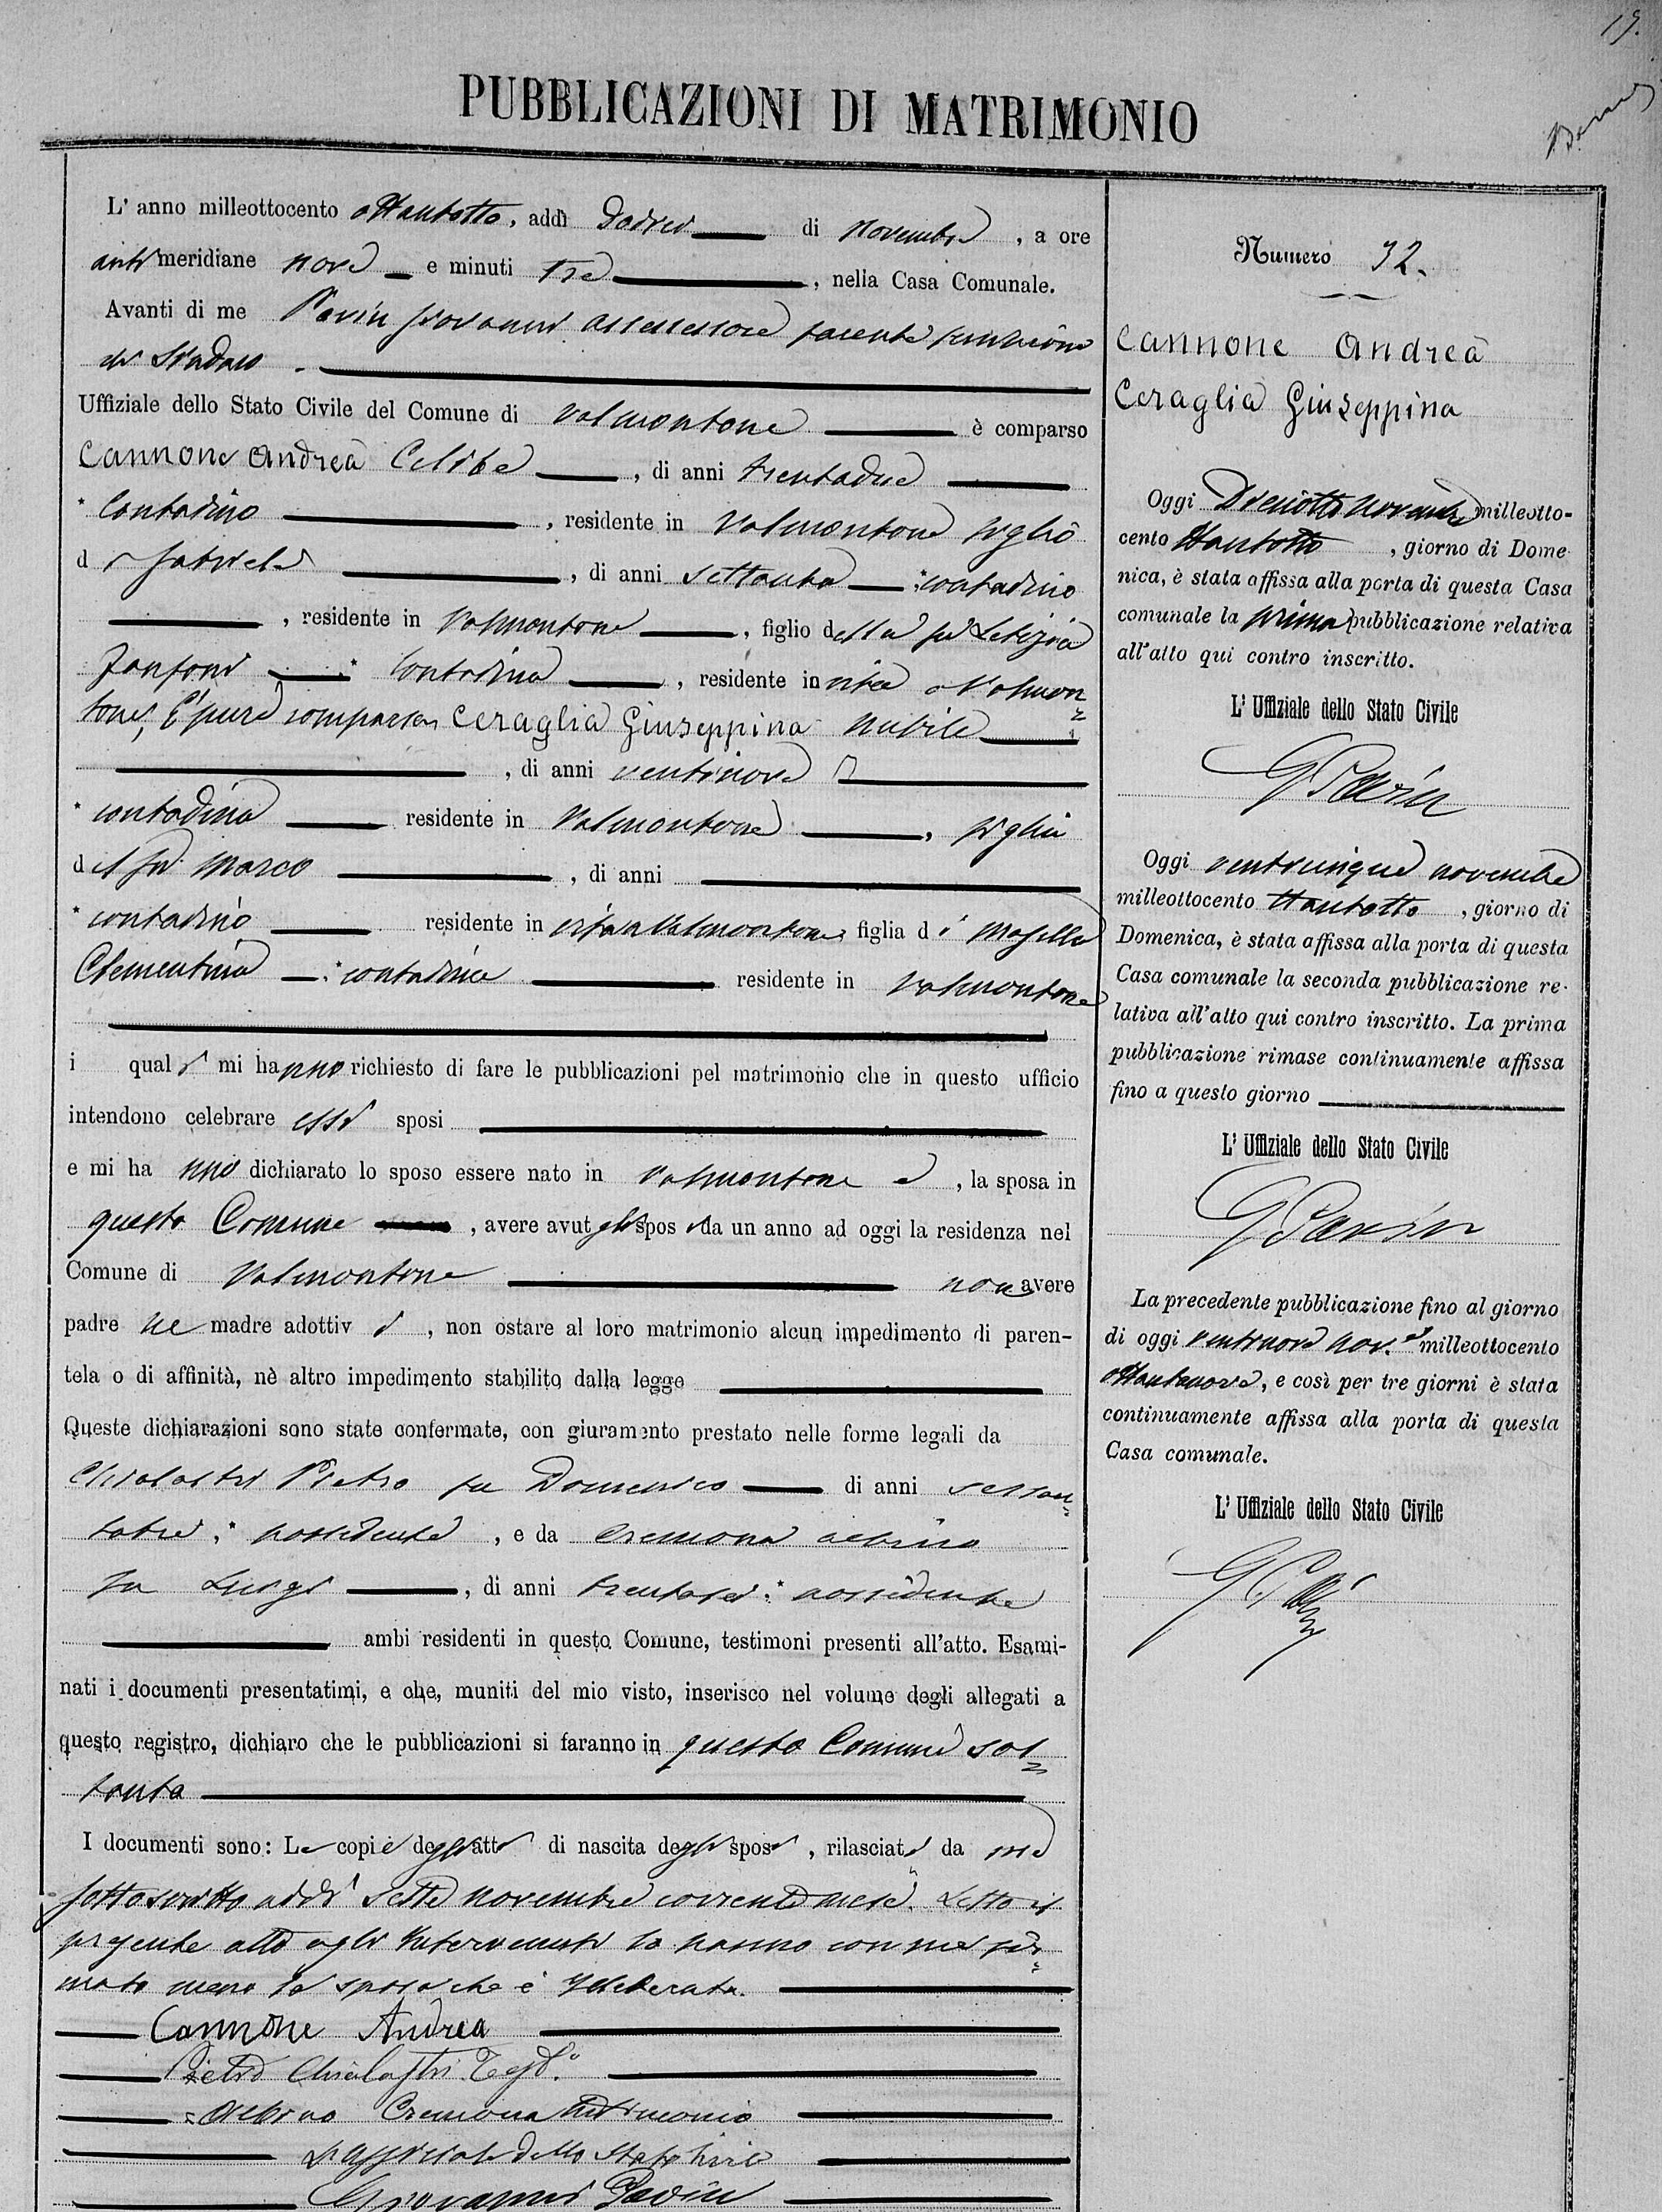 19.
PUBBLICAZIONI DI MATRIMONIO
L'anno milleottocento ottantotto, addì dodici di Novembre, a ore
anti meridiane nove e minuti tre, nella Casa Comunale.
Avanti di me Pavin Giovanni assessore facente funzione
di Sindaco
Uffiziale dello Stato Civile del Comune di Valmontone è comparso
Cannone Andrea Celibe, di anni trentadue
* Contadino, residente in Valmontone figlio
di Gabriele, di anni settanta * contadino
, residente in Valmontone, figlio della fu Letizia
Zanfoni * Contadina, residente in vita a Valmon=
tone, È pure comparsa Ceraglia Giuseppina nubile
, di anni ventinove
* contadina residente in Valmontone, figlia
del fu Marco, di anni
* contadino residente in vita a Valmontone figlia di
Clementina * contadina residente in Valmontone
i quali mi hanno richiesto di fare le pubblicazioni pel matrimonio che in questo ufficio
intendono celebrare essi sposi
e mi hanno dichiarato lo sposo essere nato in Valmontone e, la sposa in
questo Comune, avere avuto gli sposi da un anno ad oggi la residenza nel
Comune di Valmontone non avere
padre ne madre adottivi, non ostare al loro matrimonio alcun impedimento di paren-
tela o di affinità, nè altro impedimento stabilito dalla legge
Queste dichiarazioni sono state confermate, con giuramento prestato nelle forme legali da
Chialastri Pietro fu Domenico di anni sessan=
tatre, * possidente, e da Cremona Albino
fu Luigi, di anni trentasei * possidente
ambi residenti in questo Comune, testimoni presenti all'atto. Esami-
nati i documenti presentatimi, e che, muniti del mio visto, inserisco nel volume degli allegati a
questo registro, dichiaro che le pubblicazioni si faranno in questo Comune sol=
tanto
I documenti sono: Le copie degli atti di nascita degli sposi, rilasciate da me
sottoscritto addì sette novembre corrente mese. Letto il
presente atto agli intervenuti lo hanno con me fir=
mato meno la sposa che è illetterata.
Cannone Andrea
Pietro Chialastri Test.°
Albino Cremona testimonio
L'Uffiziale dello Stato Civile
Giovanni Pavin
Numero 32.
Cannone Andrea
Ceraglia Giuseppina
Oggi Dieciotto Novembre milleotto-
cento ottantotto, giorno di Dome
nica, è stata affissa alla porta di questa Casa
comunale la prima pubblicazione relativa
all'atto qui contro inscritto.
L'Uffiziale dello Stato Civile
G Pavin
Oggi venticinque novembre
milleottocento ottantotto, giorno di
Domenica, è stata affissa alla porta di questa
Casa comunale la seconda pubblicazione re-
lativa all'atto qui contro inscritto. La prima
pubblicazione rimase continuamente affissa
fino a questo giorno
L'Uffiziale dello Stato Civile
G Pavin
La precedente pubblicazione fino al giorno
di oggi ventinove nov.e milleottocento
ottantanove, e così per tre giorni è stata
continuamente affissa alla porta di questa
Casa comunale.
L'Uffiziale dello Stato Civile
G Pavin